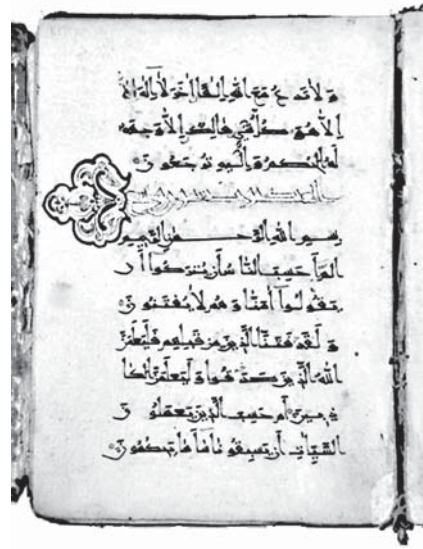 ولا تدع مع الله الها اخر لا اله
الا هو كل شي هالك الا وجهه
له الحكم واليه ترجعون
بسم الله الرحمن الرحيم
الم احسب الناس ان يتركوا ان
يقولوا امنا وهم لا يفتنون
ولقد فتنا الذين من قبلهم فليعلمن
الله الذين صدقوا وليعلمن الكا
ذبين ام حسب الذين يعملو ن
السيات ان يسبقونا سا ما يحكمون